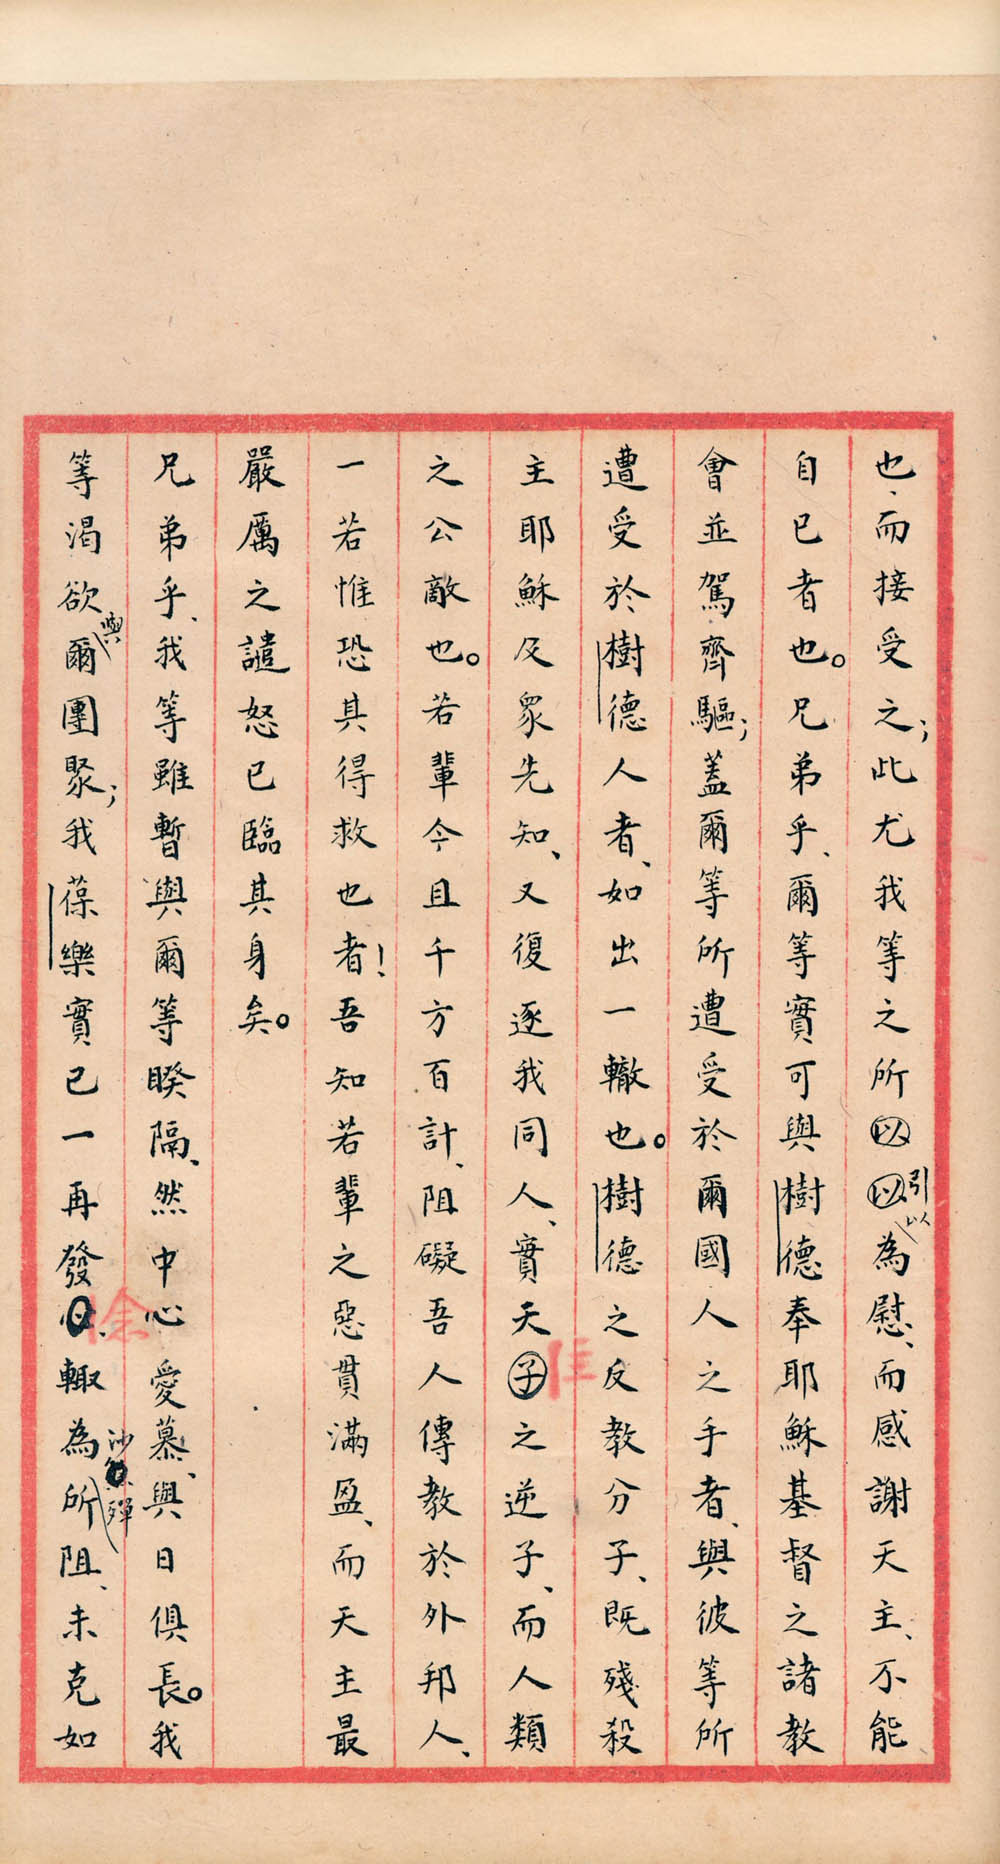 也、而接受之；此尤我等之所以以引以為慰、而感謝天主、不能
自已者也。兄弟乎、爾等實可與樹德奉耶穌基督之諸教
會並駕齊驅；蓋爾等所遭受於爾國人之手者、與彼等所
遭受於樹德人者、如出一轍也。樹德之反教分子、既殘殺
主耶穌及眾先知、又復逐我同人、實天子之逆子、而人類
之公敵也。若輩今且千方百計、阻礙吾人傳教於外邦人、
一若惟恐其得救也者！吾知若輩之惡貫滿盈、而天主最
嚴厲之譴怒已臨其身矣。
兄弟乎、我等雖暫與爾等暌隔、然中心愛慕、與日俱長。我
等渴欲與爾團聚；我葆樂實已一再發心、輙為沙殫所阻、未克如